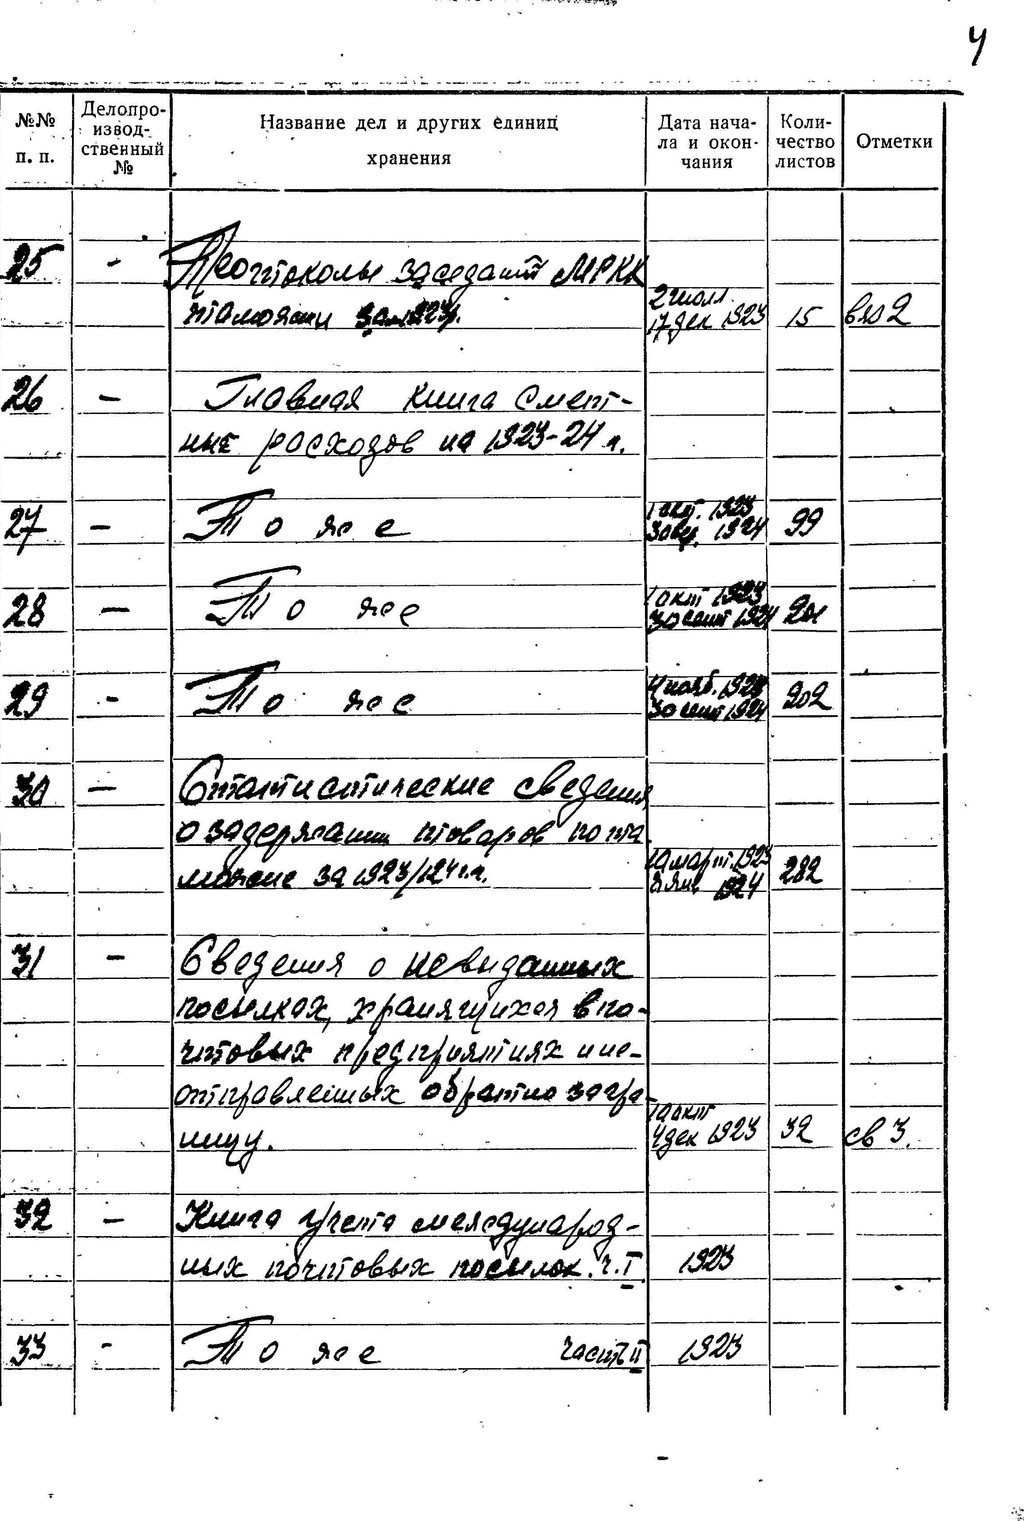 4
№№ п. п.
Делопроизвод-ственный №
Название дел и других единиц хранения
Дата нача-ла и окон-чания
Коли-чество листов
Отметки
25 - Протоколы заседаний МРКК
таможни за 1923г. 2 июля 17 дек 1923 15 
26 - Главная книга смет-
ных расходов на 1923-24 г.
27 - То же 1 окт. 1923 1924 99
28 - То же 1 окт 1923 30 сент 1924 201
29 - То же 4 нояб. 1923 30 сент 1924 202
30 - Статистические сведения
о задержании товаров по та
можне за 1923/1924 г.г. 10 март. 1923 8 янв 1924 282
31 - Сведения о невыданных
посылках, хранящихся в по-
чтовых предприятиях и не-
отправленных обратно загра-
ницу. 10 окт 4 дек 1923 32 св 3.
32 - Книга учета международ-
ных почтовых посылок. ч. I 1923
33 - То же часть II 1923